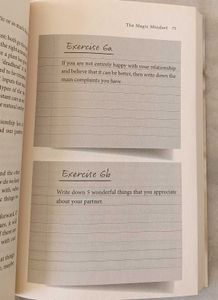 The Magic Mindset 75
Exercise 6a
If you are not entirely happy with your relationship
and believe that it can be better, then write down the
main complaints you have.
Exercise 6b
Write down 5 wonderful things that you appreciate
about your partner.